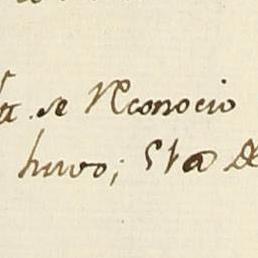 se Reconocio
huvo; sta de